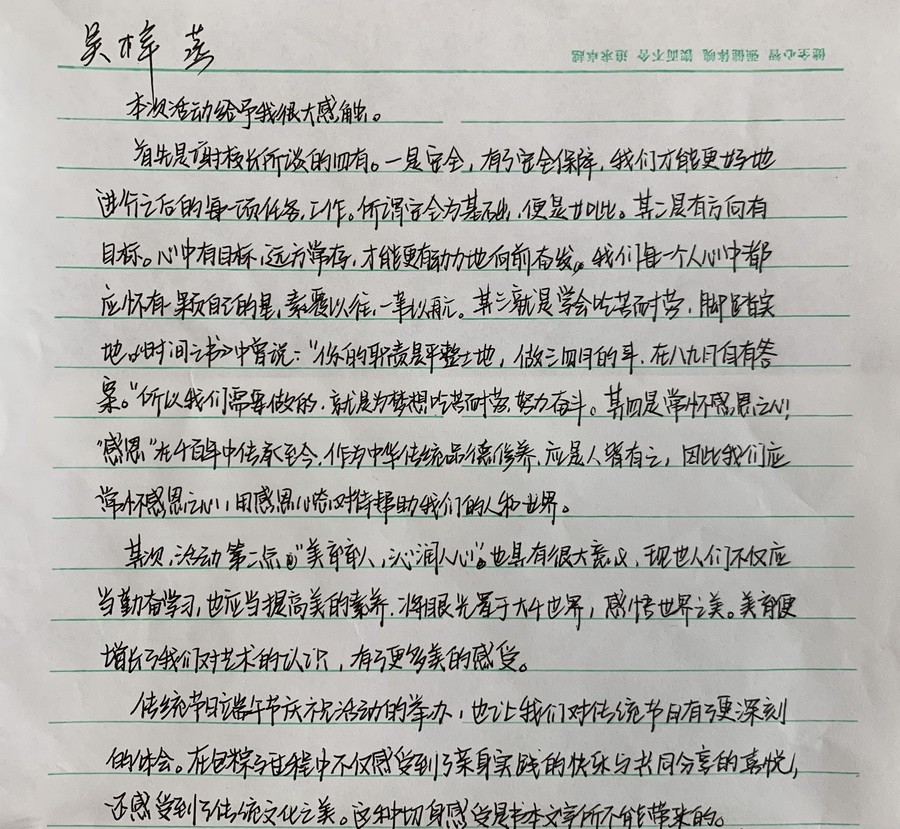 吴梓蒸
健全心智 强健体魄 锲而不舍 追求卓越
本次活动给予我很大感触。
首先是谢校长所谈的四有。一是安全，有了安全保障，我们才能更好地
进行之后的每一项任务、工作。所谓安全为基石出，便是如此。其二是有方向有
目标。心中有目标，远方常存，才能更有动力地向前奋发。我们每一个人心中都
应怀有一颗自己的星，素履以往，一苇以航。其三就是学会吃苦耐劳，脚踏实
地。《时间之书》中曾说：“你的职责是平整土地，做三四月的事，在八九月自有答
案。”所以我们需要做的，就是为梦想吃苦耐劳，努力奋斗。其四是常怀感恩之心！
“感恩”在千百年中传承至今，作为中华传统品德修养，应是人皆有之，因此我们应
常怀感恩之心，用感恩心态对待帮助我们的人和世界。
其次，活动第二点“美育育人，沁润人心”也具有很大意义，现也人们不仅应
当勤奋学习，也应当提高美的素养，将眼光置于大千世界，感悟世界之美。美育便
增长了我们对艺术的认识，有了更多美的感受。
传统节日端午节庆祝活动的举办，也让我们对传统节日有了更深刻
的体会。在包粽子过程中不仅感受到了亲身实践的快乐与共同分享的喜悦，
还感受到了传统文化之美。这种切身感受是书本文字所不能带来的。